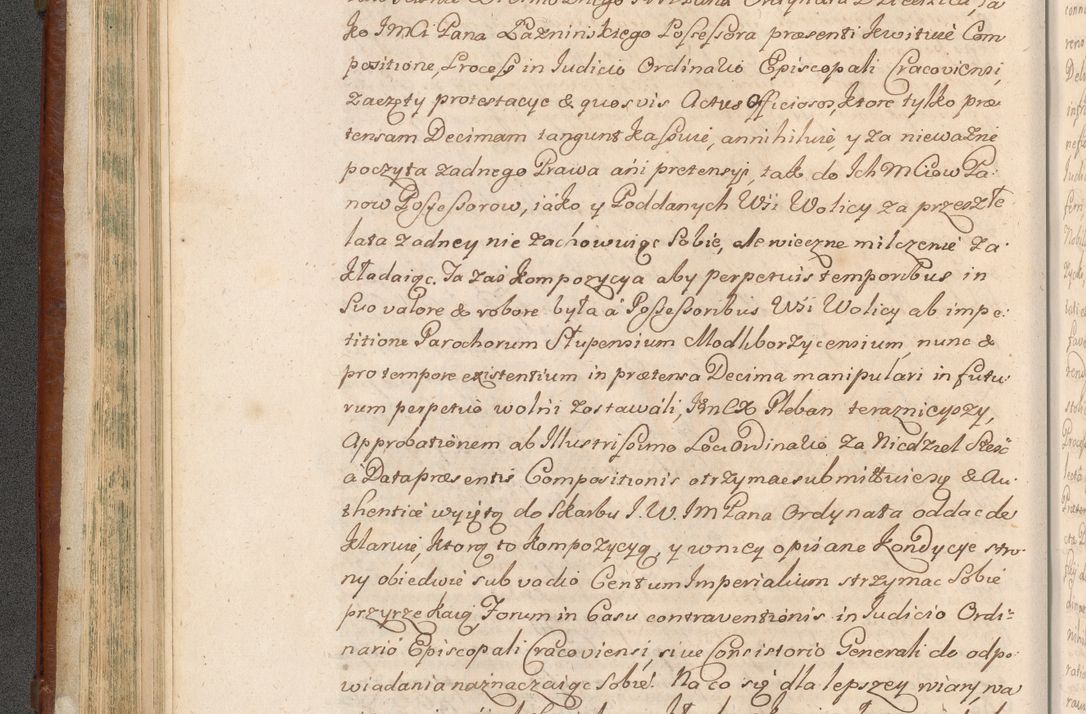 ko JMCi Pana Łaznińskiego Possessora præsenti kwituié Com
positione, Process in Judicio Ordinario Episcopali Cracoviensi,
zaczęty protestacye & quosvis Actus Officiosos, ktore tylko præ
tensam Decimam tangunt kassuie, annihiluie, y za nieważne
poczyta żadnego Prawa áni pretensyi, tak do Ich MCiow Pa-
now Possessorow, iáko y Poddanych Wśi Wolicy za przeszłe
lata żadney nie zachowuiąc Sobie, ale wieczne milczenie za-
kładaiąc. Ta zaś kompozycya aby perpetuis temporibus in
Suo valore & robore była á Possessoribus Wśi Wolicy ab impe-
titione Parochorum Słupensium Modliborzycensium, nunc &
pro tempore existentium in prætensa Decima manipulari in futu-
rum perpetuo wolni zostawáli, JmCX Pleban teraznieyszy,
Approbationem ab Illustrissimo Loci Ordinario za Niedziel Sześć
á Data præsentis Compositionis otrzymae submittuiesy & Au-
thenticé wyiętą do Skarbu J. W. JM Pana Ordynata oddac de
klaruie, ktorą to kompozycyą, y wniey opisane kondycye stro-
ny obiedwie sub vadio Centum Imperialium strzymac Sobie
przyrzekaią, Forum in Casu contraventionis in Judicio Ordi-
nario Episcopali Cracoviensi, siue Consistorio Generali do odpo-
wiadania naznaczaiąc Sobie. Na co się dla lepszey wiary, wa